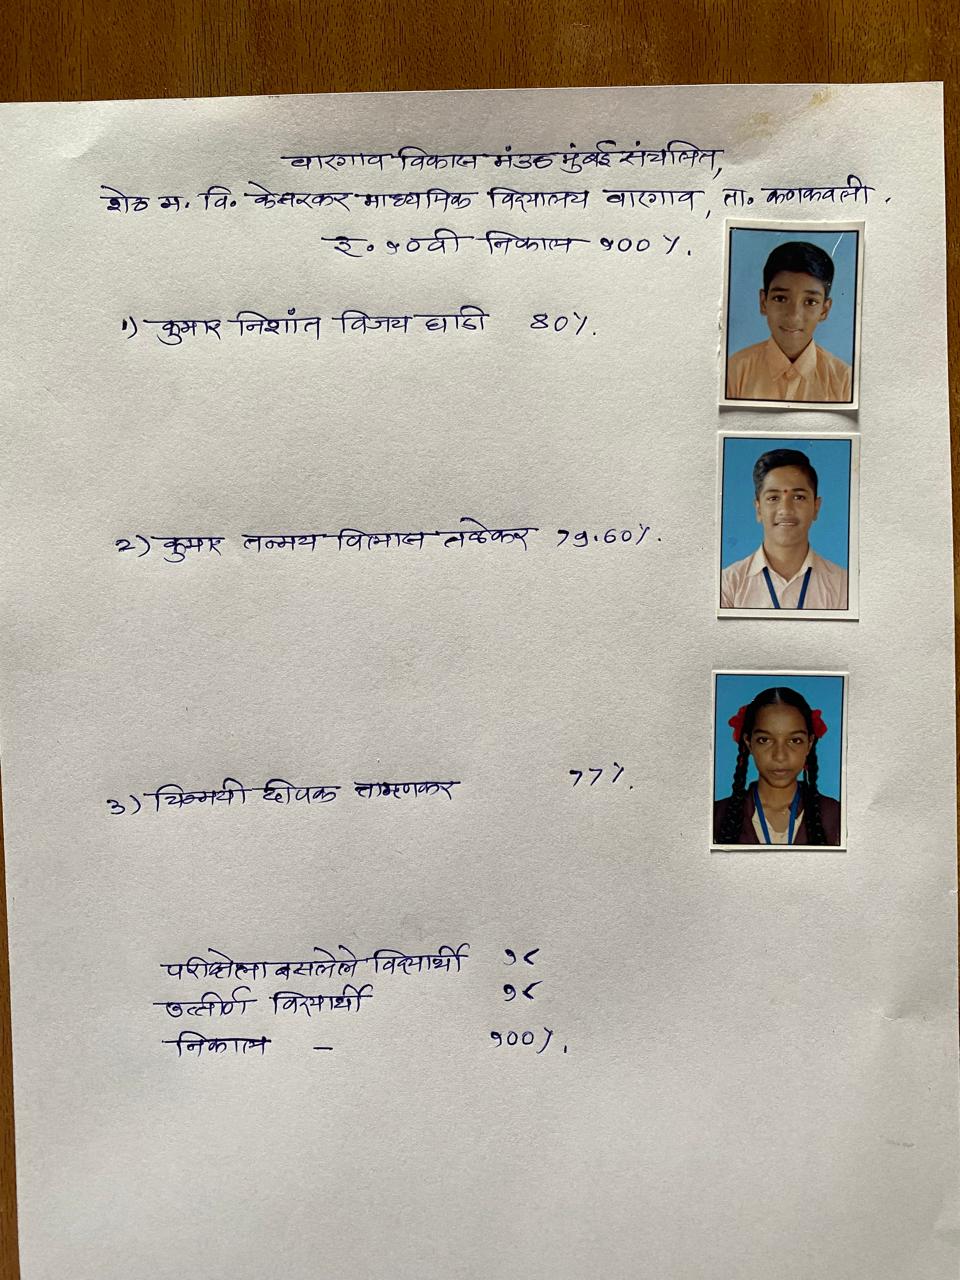 वारगाव विकास मंडळ मुंबई संचलित,
शेठ म. वि. केसरकर माध्यमिक विद्यालय वारगाव, ता. कणकवली.
इ. १०वी निकाल १००%.
१) कुमार निशांत विजय घाडी 80%.
2) कुमार तन्मय विलास तळेकर 79.60%.
3) चिन्मयी दीपक ताम्हणकर 77%.
परीक्षेला बसलेले विद्यार्थी १८
उत्तीर्ण विद्यार्थी १८
निकाल – १००%.